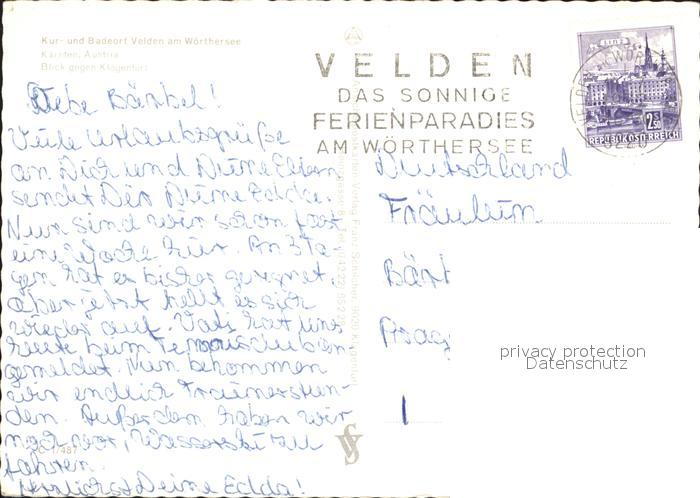 Kur- und Badeort Velden am Wörthersee
Kärnten, Austria
Blick gegen Klagenfurt
VELDEN
DAS SONNIGE
FERIENPARADIES
AM WÖRTHERSEE
LINZ
2.50
REPUBLIK ÖSTERREICH
Liebe Bärbel!
Viele Urlaubsgrüße
an Dich und Deine Eltern
sendet Dir Deine Edda.
Nun sind wir schon fast
eine Woche hier. An 3 Ta-
gen hat es bisher geregnet,
aber jetzt hellt es sich
wieder auf. Vati hat uns
heute beim Tennisclub an-
gemeldet. Nun bekommen
wir endlich Trainerstun-
den. Außerdem haben wir
noch vor, Wasserski zu
fahren.
Herzlichst Deine Edda!
C 1/487
Deutschland
Fräulein
Bärb
Prag
privacy protection
Datenschutz